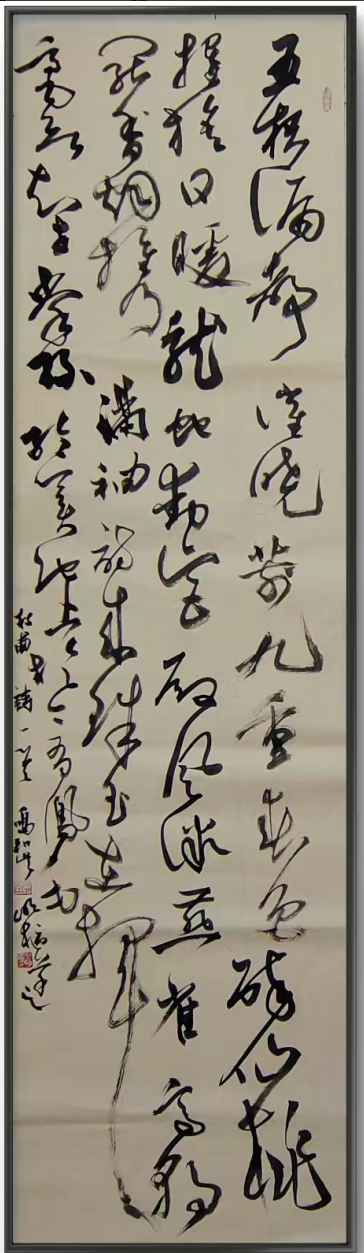 五夜漏聲催曉箭九重春色醉仙桃
旌旂日暖龍蛇動宮殿風微燕雀高朝
罷香烟攜滿袖詩成珠玉在揮
毫欲知世掌絲綸美池上于今有鳳毛
杜甫詩一首